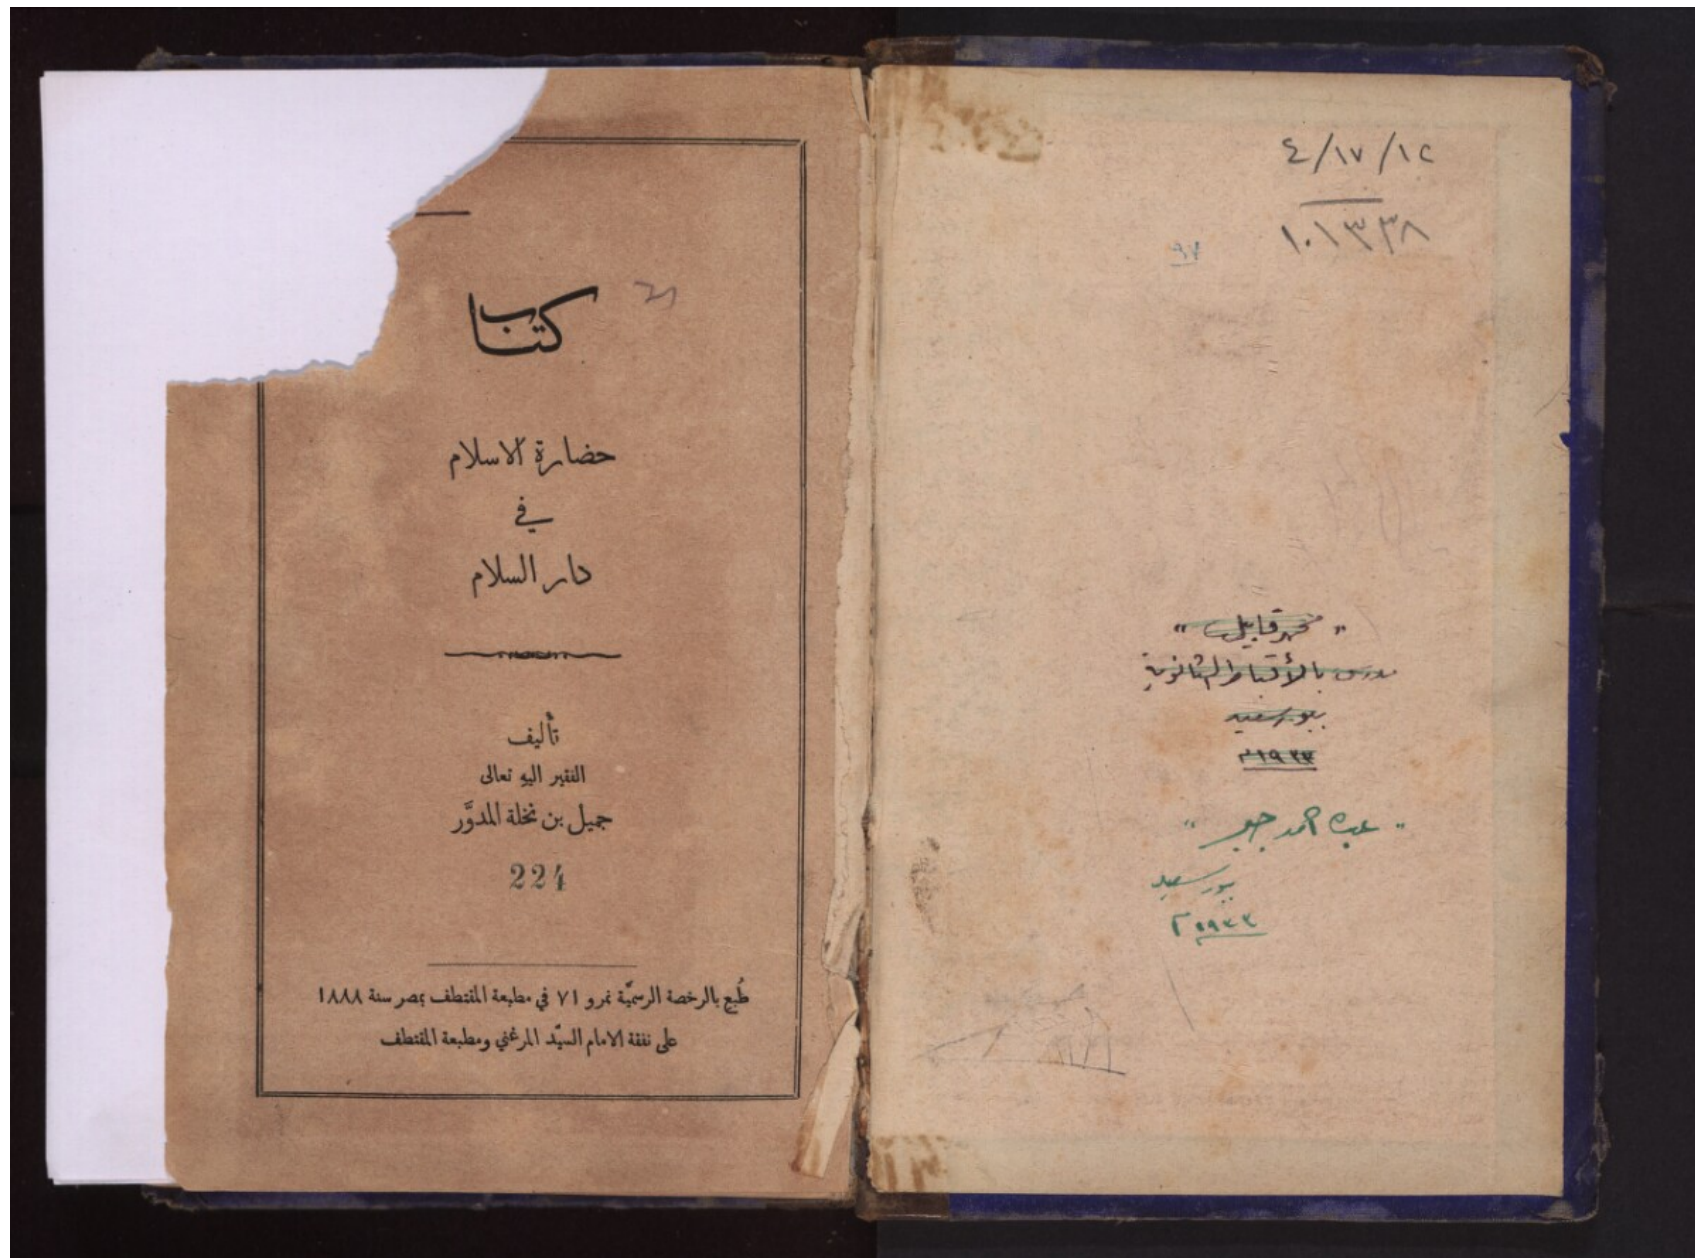 ٤/١٧/١٢
١٠١٣٣٨
٩٧
"محمد قابيل"
مدرس بالأقباط الثانوية
ببورسعيد
١٩٣٣م
بورسعيد
١٩٣٣م
كتاب
حضارة الاسلام
في
دار السلام
تأليف
الفقير اليهِ تعالى
جميل بن نخلة المدوَّر
224
طُبع بالرخصة الرسميَّة نمرو ٧١ في مطبعة المقتطف بمصر سنة ١٨٨٨
على نفقة الامام السيّد المرغني ومطبعة المقتطف